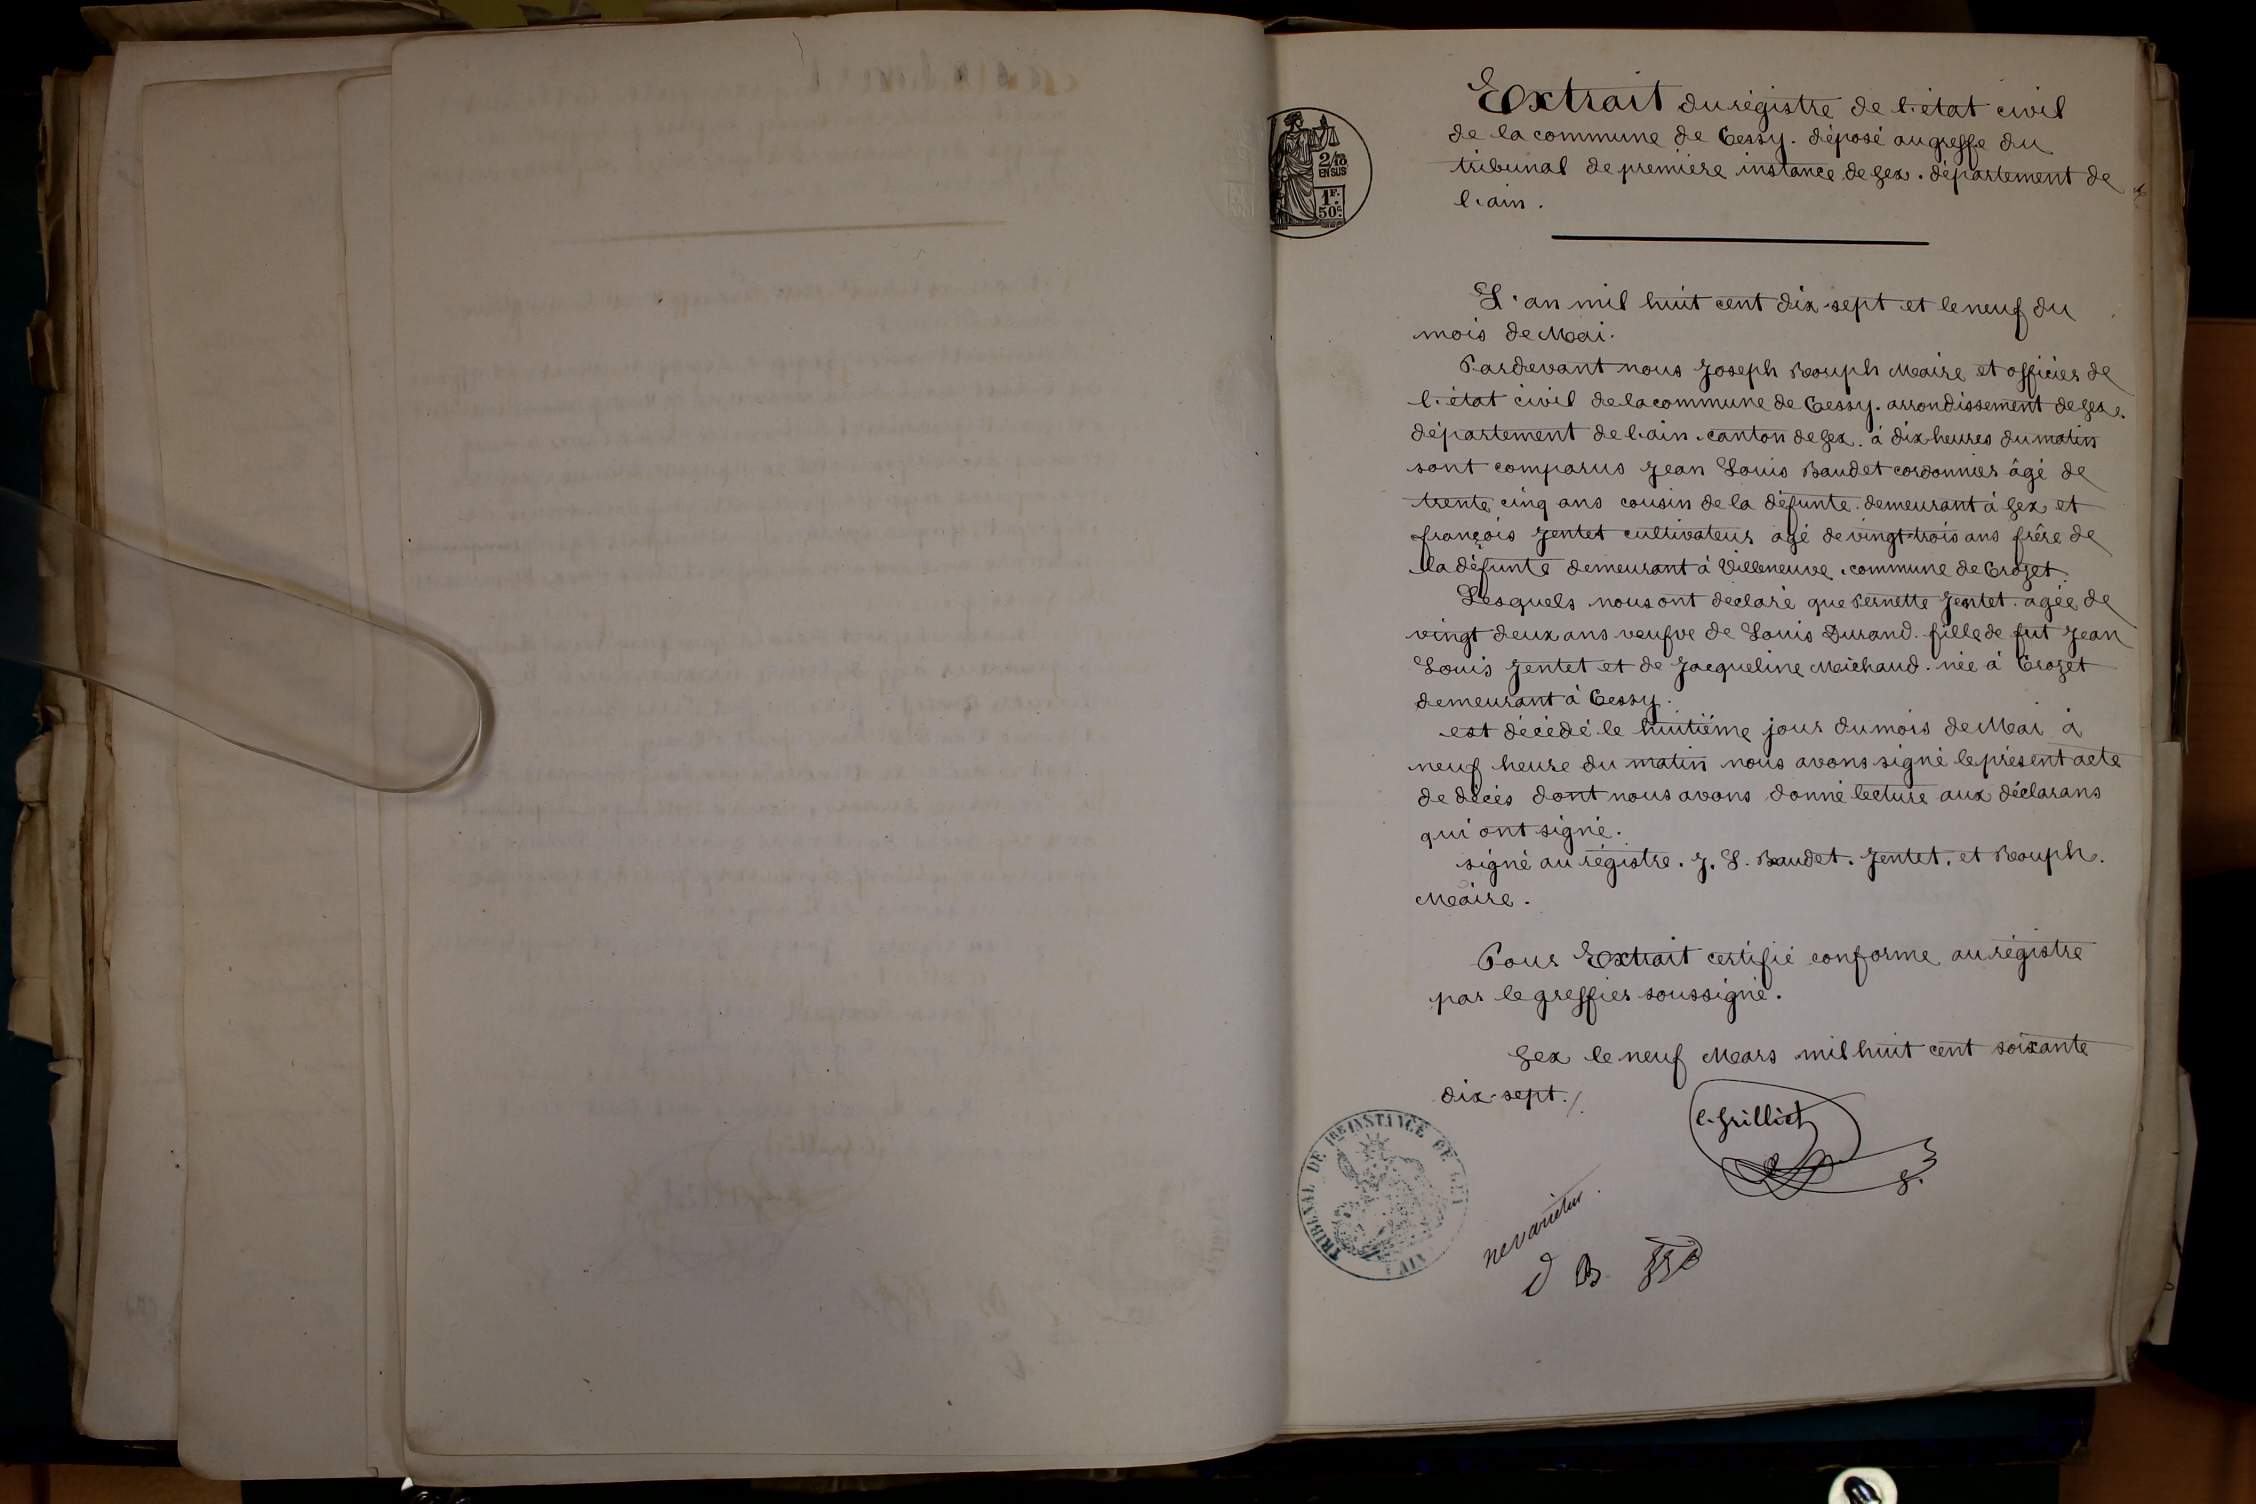 Extrait du régistre de l'état civil
de la commune de Cessy. déposé au greffe du
tribunal de première instance de Gex. département de
l'ain.
2/10
EN SUS
1F.
50c
L'an mil huit cent dix-sept et le neuf du
mois de Mai.
Pardevant nous Joseph Rouph Maire et officier de
l'état civil de la commune de Cessy. arrondissement de Gex.
département de l'ain. canton de Gex. à dix heures du matin
sont comparus Jean Louis Baudet cordonnier âgé de
trente cinq ans cousin de la défunte. demeurant à Gex et
françois Jentet cultivateur agé de vingt-trois ans frère de
la défunte demeurant à Villeneuve. commune de Crozet.
Lesquels nous ont declaré que Pernette Jentet. agée de
vingt deux ans veufve de Louis Durand. fille de fut Jean
Louis Jentet et de Jacqueline Michaud. née à Crozet
demeurant à Cessy.
est décédé le huitième jour du mois de Mai à
neuf heure du matin nous avons signé le présent acte
de décès dont nous avons donné lecture aux déclarans
qui ont signé.
signé au régistre. J. L. Baudet. Jentet. et Rouph.
Maire.
Pour Extrait certifié conforme au régistre
par le greffier soussigné.
Gex le neuf Mars mil huit cent soixante
dix-sept./.
C. Grilliet
G.
TRIBUNAL DE 1RE INSTANCE DE GEX
(AIN)
ne varietur.